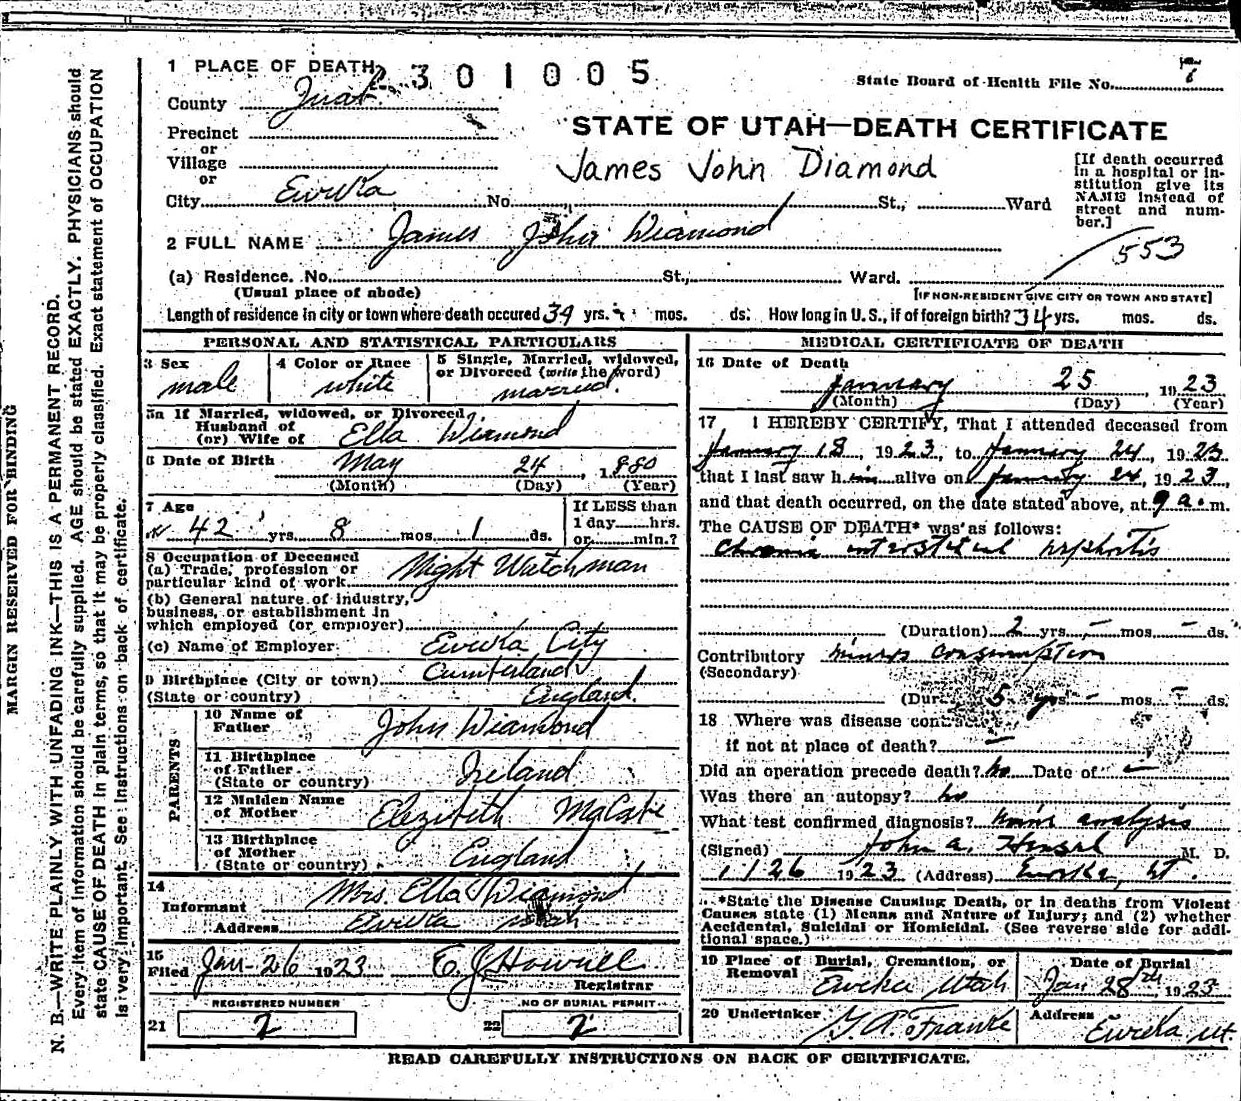 1 PLACE OF DEATH
2301005
State Board of Health File No. 7
County Juab
Precinct
or
Village
or
City Eureka No. St., Ward
STATE OF UTAH—DEATH CERTIFICATE
James John Diamond
[If death occurred
in a hospital or in-
stitution give its
NAME instead of
street and num-
ber.]
2 FULL NAME James John Diamond
553
(a) Residence. No. St., Ward.
(Usual place of abode)
[IF NON-RESIDENT GIVE CITY OR TOWN AND STATE]
Length of residence in city or town where death occured 34 yrs. mos. ds. How long in U. S., if of foreign birth? 34 yrs. mos. ds.
PERSONAL AND STATISTICAL PARTICULARS
3 Sex
male
4 Color or Race
white
5 Single, Married, widowed,
or Divorced (write the word)
married.
5a If Married, widowed, or Divorced
Husband of
(or) Wife of Ella Diamond
6 Date of Birth May 24, 1880
(Month) (Day) (Year)
7 Age
42 yrs. 8 mos. 1 ds.
If LESS than
1 day hrs.
or min.?
8 Occupation of Deceased
(a) Trade, profession or
particular kind of work Night Watchman
(b) General nature of industry,
business, or establishment in
which employed (or employer)
(c) Name of Employer Eureka City
9 Birthplace (City or town) Cumberland
(State or country) England.
PARENTS
10 Name of
Father John Diamond
11 Birthplace
of Father
(State or country) Ireland
12 Maiden Name
of Mother Elezibeth McCabe
13 Birthplace
of Mother
(State or country) England
14
Informant Mrs. Ella Diamond
Address Eureka Utah
15
Filed Jan-26 1923 E. J. Howell
Registrar
REGISTERED NUMBER
21 2
NO OF BURIAL PERMIT
22 2
MEDICAL CERTIFICATE OF DEATH
16 Date of Death
January 25, 1923
(Month) (Day) (Year)
17 I HEREBY CERTIFY, That I attended deceased from
January 18, 1923, to January 24, 1923
that I last saw him alive on January 24, 1923,
and that death occurred, on the date stated above, at 9 a. m.
The CAUSE OF DEATH* was as follows:
Chronic interstitial nephritis
(Duration) 2 yrs. — mos. — ds.
Contributory miners consumption
(Secondary)
(Dur 5 yrs. — mos. — ds.
18 Where was disease cont
if not at place of death? —
Did an operation precede death? no Date of —
Was there an autopsy? no
What test confirmed diagnosis? Urine analysis
(Signed) John A. Hensel M. D.
1/26 1923 (Address) Eureka, Ut.
*State the Disease Causing Death, or in deaths from Violent
Causes state (1) Means and Nature of Injury; and (2) whether
Accidental, Suicidal or Homicidal. (See reverse side for addi-
tional space.)
19 Place of Burial, Cremation, or
Removal
Eureka Utah
Date of Burial
Jan 28th, 1923
20 Undertaker
Address
Eureka Ut.
READ CAREFULLY INSTRUCTIONS ON BACK OF CERTIFICATE.
MARGIN RESERVED FOR BINDING
N. B.—WRITE PLAINLY WITH UNFADING INK—THIS IS A PERMANENT RECORD.
Every item of information should be carefully supplied. AGE should be stated EXACTLY. PHYSICIANS should
state CAUSE OF DEATH in plain terms, so that it may be properly classified. Exact statement of OCCUPATION
is very important. See instructions on back of certificate.